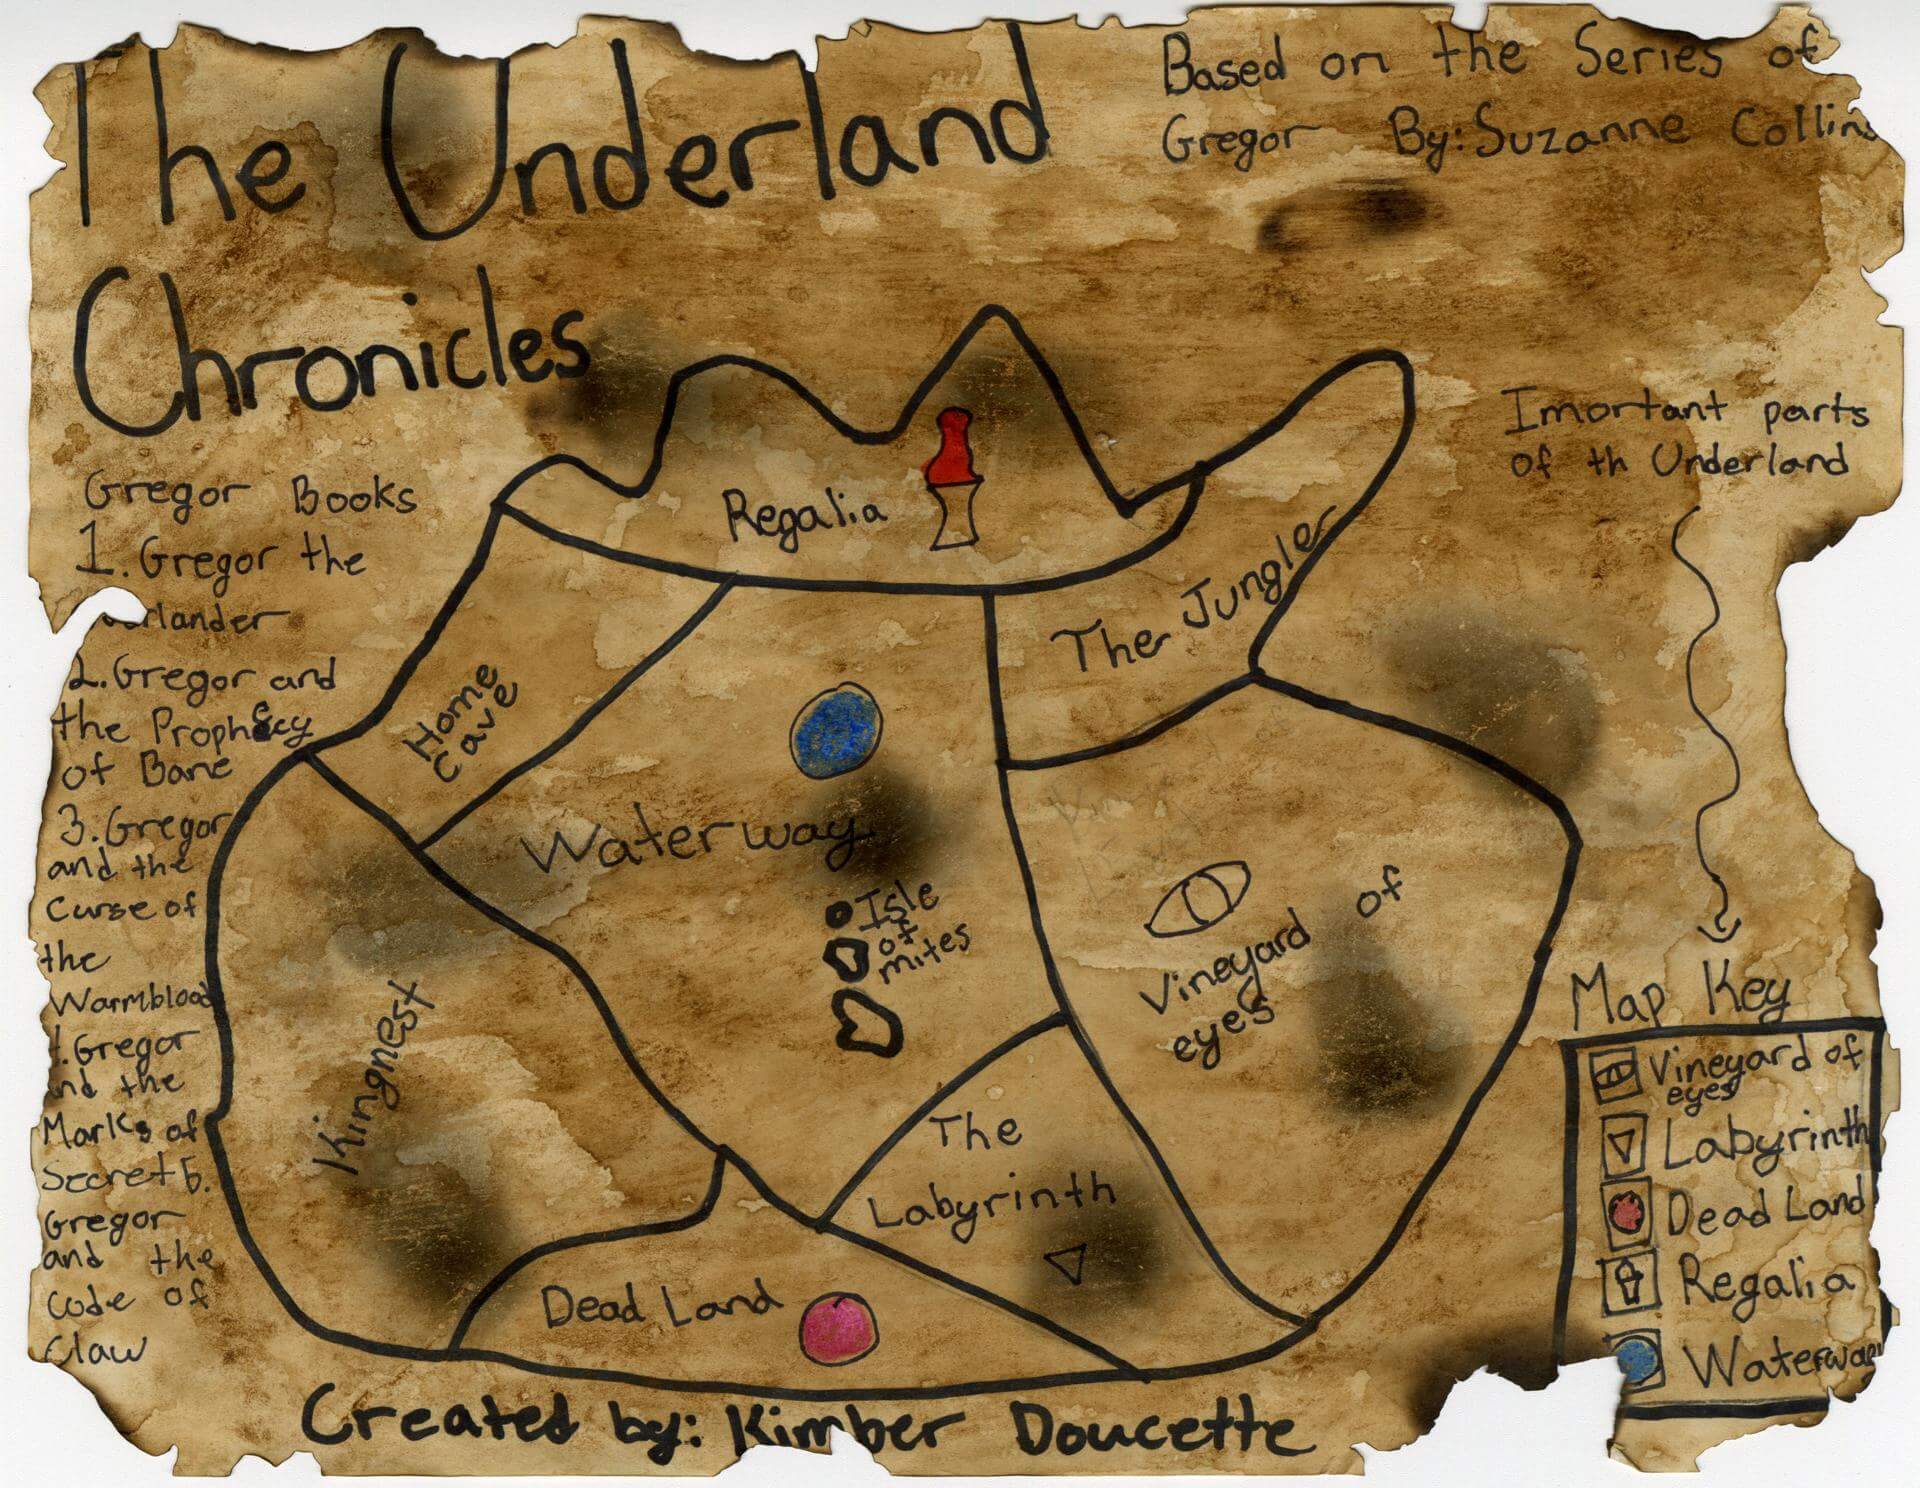 The Underland
Chronicles
Based on the Series of
Gregor By: Suzanne Collins
Gregor Books
1. Gregor the
erlander
2. Gregor and
the Prophecy
of Bane
3. Gregor
and the
Curse of
the
Warmblood
. Gregor
nd the
Marks of
Secret 5.
Gregor
and the
code of
Claw
Regalia
The Jungler
Home
Cave
Waterway
Isle
of
mites
Vineyard of
eyes
Kingnest
The
Labyrinth
Dead Land
Imortant parts
of th Underland
Map Key
Vineyard of
eyes
Labyrinth
Dead Land
Regalia
Waterway
Created by: Kimber Doucette